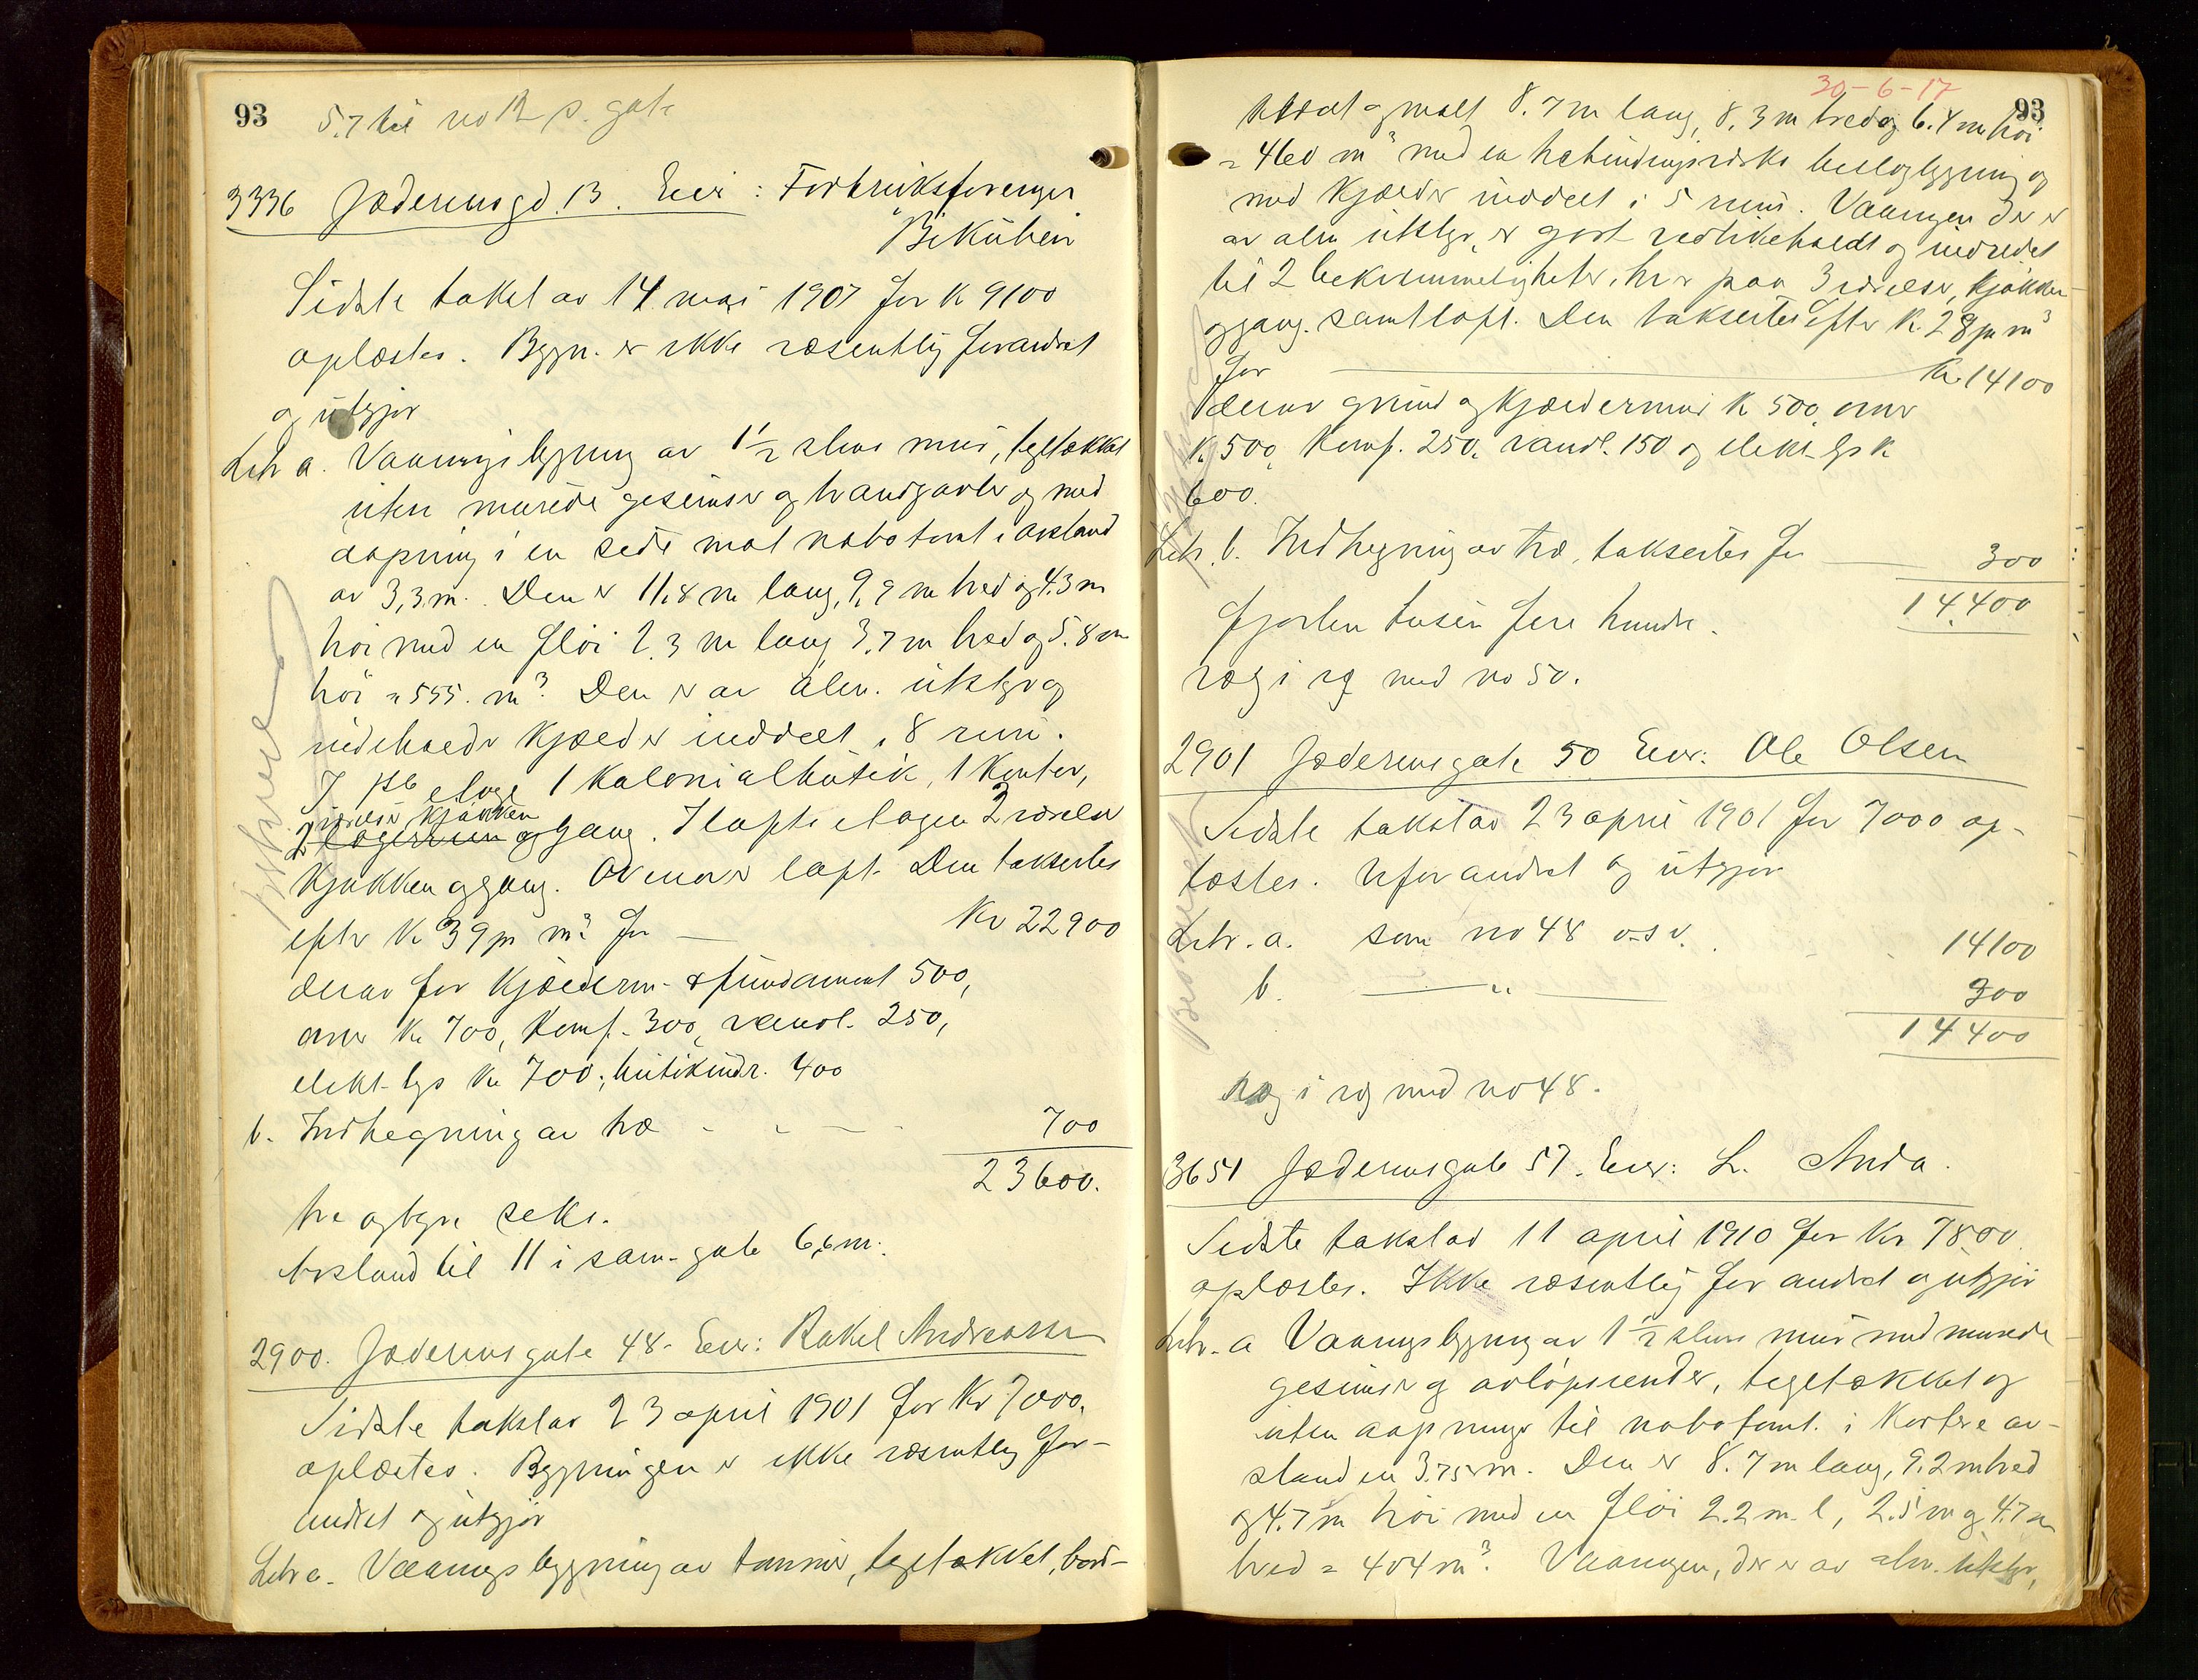 93
5.7 til no
gate
3336 Jæderensgd. 13. Eier: Forbruksforenger
"Bikuben
Sidste takst av 14 mai 1907 for K 9100
oplæstes. Bygn. er ikke væsentlig forandret
og utgjør
Litr a. Vaaningsbygning av 1½ stens mur, teglt ækket
uten murede gesimser og brandgavler og med
aapning i en side mot nabotomt i avstand
av 3,3 m. Den er 11.8 m lang, 9,9 m bred og 4.3 m
høi med en fløi 2.3 m lang 3.7 m bred og 5.8 m
høi = 555. m³. Den er av alm. utstyr og
indeholder kjælder inddelt i 8 rum.
I 1ste etage 1 Kolonialbutik, 1 Kontor,
2 værelser kjøkken
lagerrum og gang. I loftsetagen 2 værelser
kjøkken og gang. Ovenover loft. Den takseres
efter K 39 pr m³ for Kr 22900
derav for kjælderm. & fundament 500,
ovner K 700, komf. 300, vandl. 250,
elekt. lys K 700, butikindr. 400
b. Indhegning av træ 700
23600.
tre og tyve seks.
Avstand til 11 i sam. gate 6,6 m.
2900. Jæderensgate 48. Eier: Rakel Andreassen
Sidste takst av 23 april 1901 for Kr 7000,
oplæstes. Bygningen er ikke væsentlig for-
andret og utgjør
Litr a. Vaaningsbygning av tømmer, teglt ækket, bord-
30-6-17
93
klædt og malt 8.7 m lang, 8.3 m bred og 6.4 m høi
= 460 m³ med en bakbygning og
med kjælder inddelt i 5 rum. Vaaningen der er
av alm utstyr, er godt vedlikeholdt og indredet
til 2 bekvemmeligheter, hver paa 3 værelser, kjøkken
og gang. samt loft. Den takseres efter K 28 pr m³
for Kr. 14100
derav grund og kjældermur K 500, ovner
K 500, komf. 250, vandl. 150 og elekt. lys K
600.
Litr. b. Indhegning av træ, takseres for 300
14.400
fjorten tusen fire hundre.
væg i væg med no 50.
2901 Jæderensgate 50 Eier: Ole Olsen
Sidste takst av 23 april 1901 for 7000 op-
læstes. Uforandret og utgjør
Litr. a. som no 48 o.s.v. 14100
b. — " — 300
14400
væg i væg med no 48.
3651 Jæderensgate 57. Eier: L. Anda.
Sidste takst av 11 april 1910 for Kr 7800
oplæstes. Ikke væsentlig forandret og utgjør
Litr. a Vaaningsbygning av 1½ stens mur med murede
gesimser og avløpsrender, teglt ækket og
uten aapninger til nabotomt. i kortere av-
stand en 3.75 m. Den er 8.7 m lang, 9.2 m bred
og 4.7 m høi med en fløi 2.2 m l, 2.5 m og 4.7 m
bred = 404 m³. Vaaningen, der er av alm. utstyr,